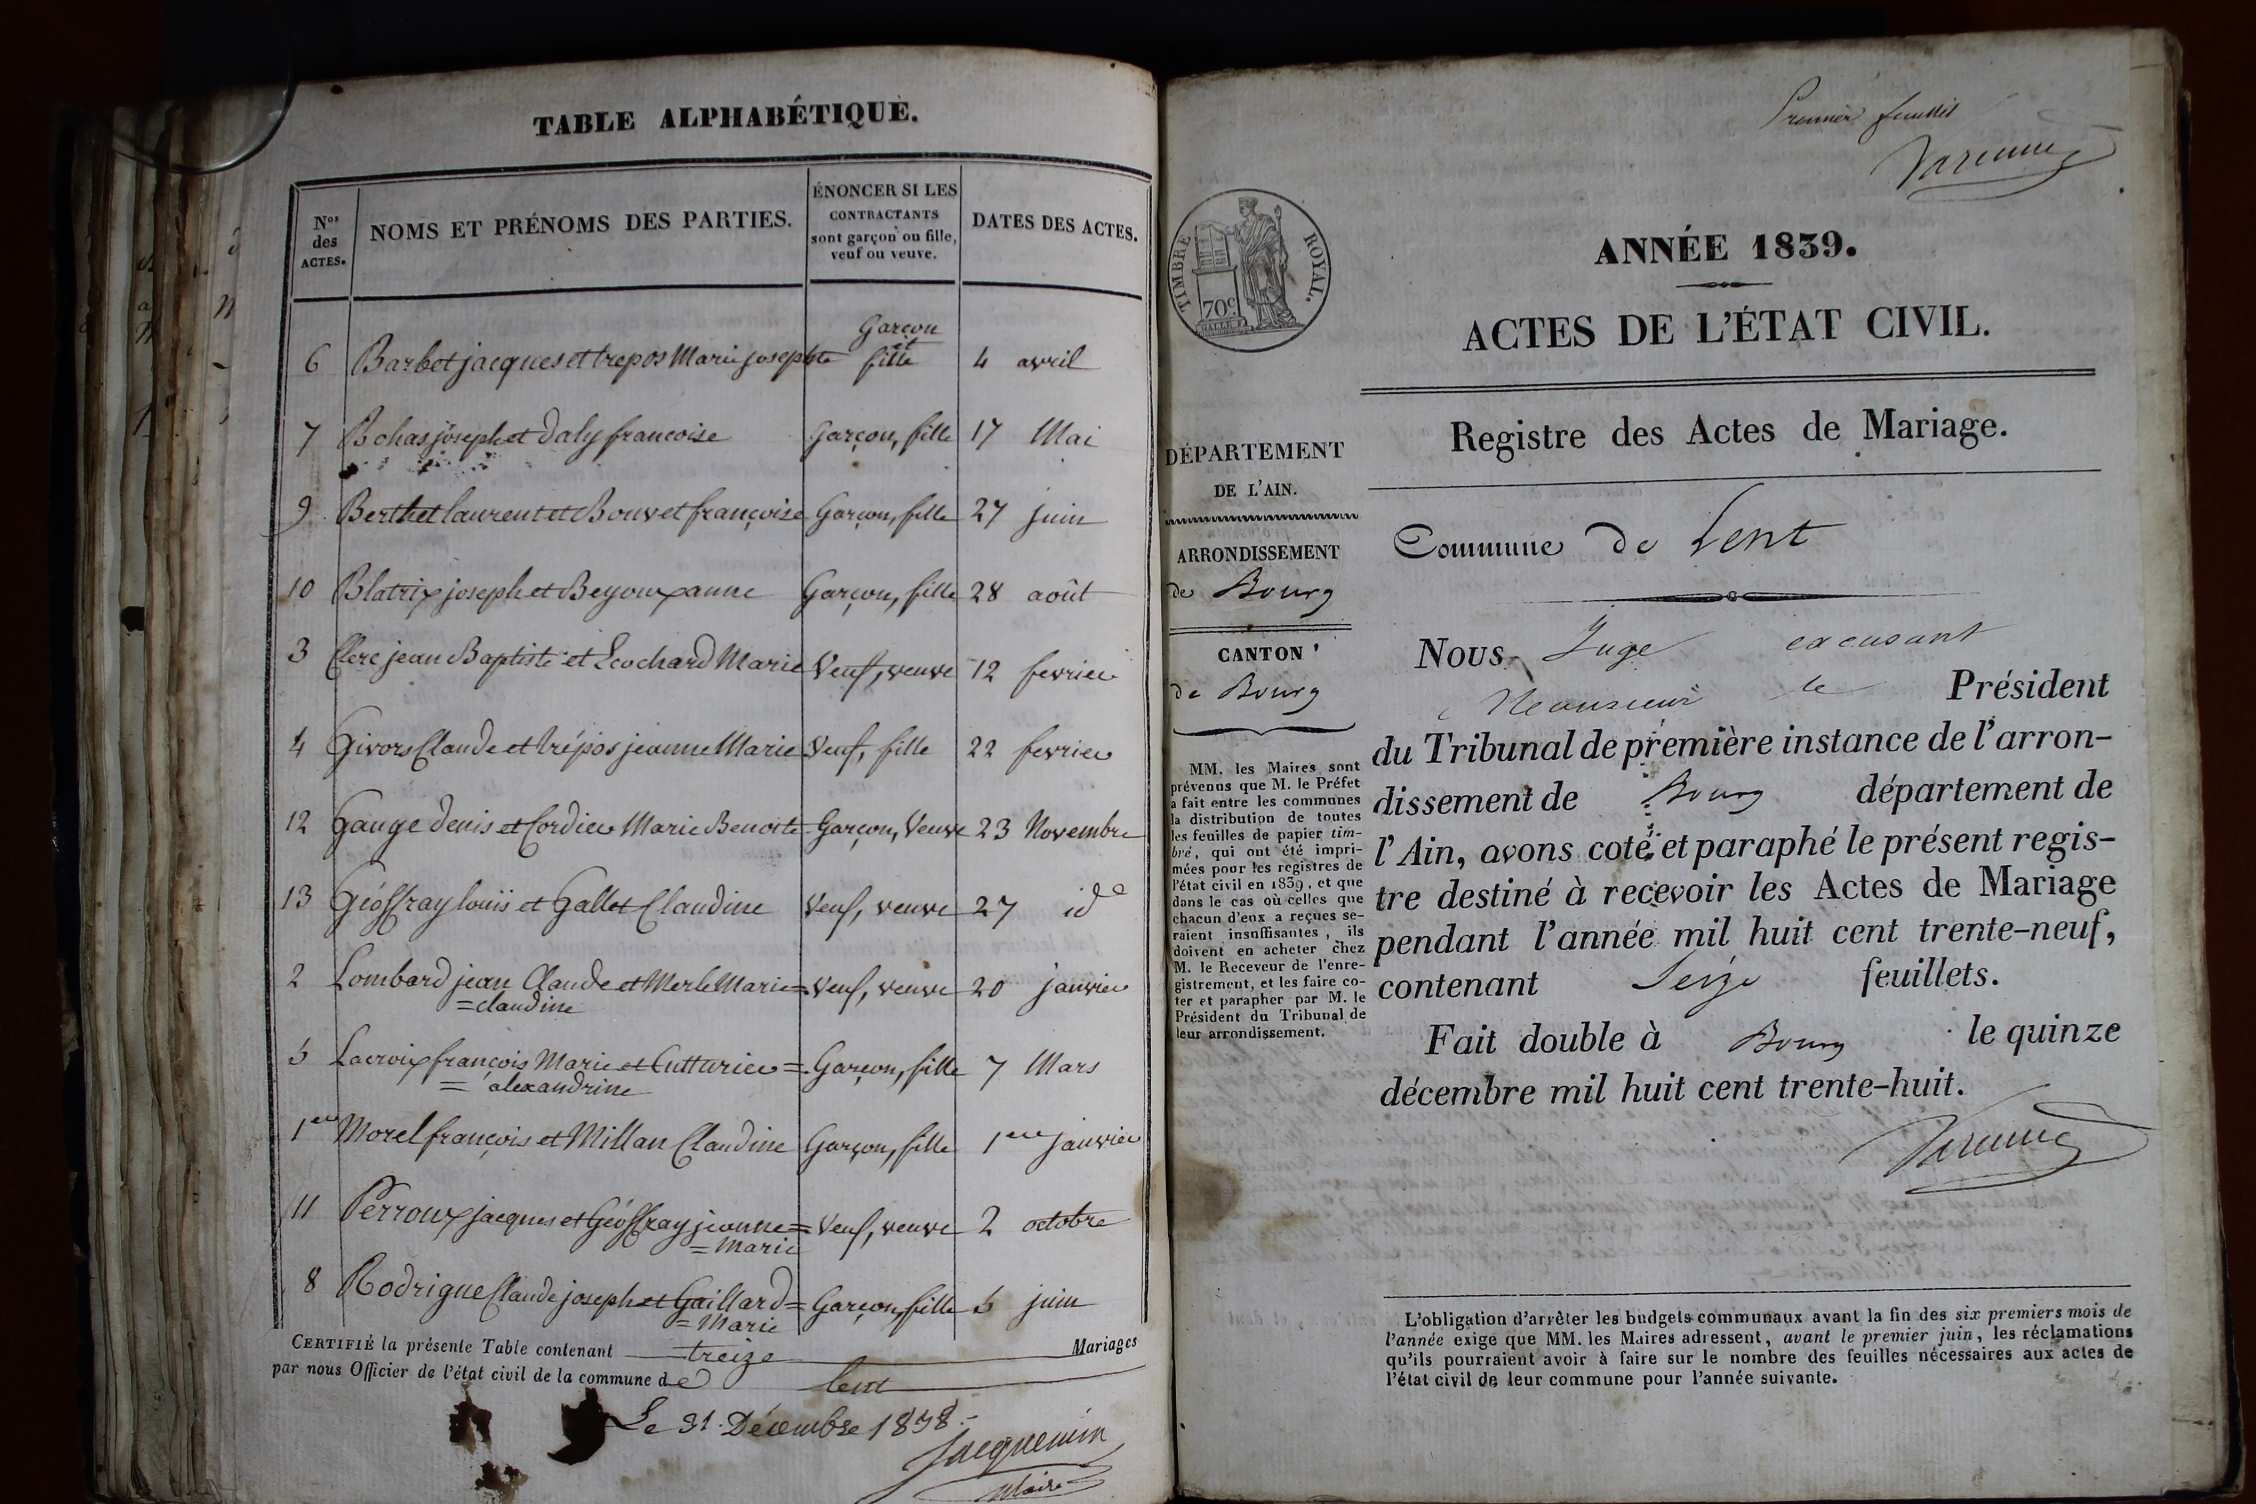 TABLE ALPHABÉTIQUE.
Nos des ACTES.
NOMS ET PRÉNOMS DES PARTIES.
ÉNONCER SI LES CONTRACTANTS sont garçon ou fille, veuf ou veuve.
DATES DES ACTES.
6 Barbet jacques et trepos Marie josephte Garçon et fille 4 avril
7 Bohas joseph et Daly francoise Garçon, fille 17 Mai
9 Berthet laurent et Bouvet françoise Garçon, fille 27 juin
10 Blatrix joseph et Beyoux anne Garçon, fille 28 août
3 Clerc jean Baptiste et Leochard Marie Veuf, veuve 12 fevrier
4 Givors Claude et trépos jeanne Marie Veuf, fille 22 fevrier
12 Gauge denis et Cordier Marie Benoite Garçon, Veuve 23 Novembre
13 Géoffray louis et Gallet Claudine Veuf, veuve 27 id
2 Lombard jean Claude et Merle Marie= Veuf, veuve 20 janvier
=claudine
5 Lacroix françois Marie et Cutturier = Garçon, fille 7 Mars
= alexandrine
1er Morel françois et Millan Claudine Garçon, fille 1er janvier
11 Perroux jacques et Géoffray jeanne= Veuf, veuve 2 octobre
= Marie
8 Rodrigue Claude joseph et Gaillard= Garçon, fille 5 juin
= Marie
CERTIFIÉ la présente Table contenant treize Mariages
par nous Officier de l'état civil de la commune de lent
Le 31 Décembre 1838.
Jacquemin
Maire
Premier feuillet
Varenne
TIMBRE ROYAL.
70c
ANNÉE 1839.
ACTES DE L'ÉTAT CIVIL.
Registre des Actes de Mariage.
DÉPARTEMENT
DE L'AIN.
ARRONDISSEMENT
de Bourg
CANTON
de Bourg
MM. les Maires sont
prévenus que M. le Préfet
a fait entre les communes
la distribution de toutes
les feuilles de papier tim-
bré, qui ont été impri-
mées pour les registres de
l'état civil en 1839, et que
dans le cas où celles que
chacun d'eux a reçues se-
raient insuffisantes, ils
doivent en acheter chez
M. le Receveur de l'enre-
gistrement, et les faire co-
ter et parapher par M. le
Président du Tribunal de
leur arrondissement.
Commune de Lent
Nous Juge excusant
Monsieur le Président
du Tribunal de première instance de l'arron-
dissement de Bourg département de
l'Ain, avons coté et paraphé le présent regis-
tre destiné à recevoir les Actes de Mariage
pendant l'année mil huit cent trente-neuf,
contenant Seize feuillets.
Fait double à Bourg le quinze
décembre mil huit cent trente-huit.
Varenne
L'obligation d'arrêter les budgets communaux avant la fin des six premiers mois de
l'année exige que MM. les Maires adressent, avant le premier juin, les réclamations
qu'ils pourraient avoir à faire sur le nombre des feuilles nécessaires aux actes de
l'état civil de leur commune pour l'année suivante.